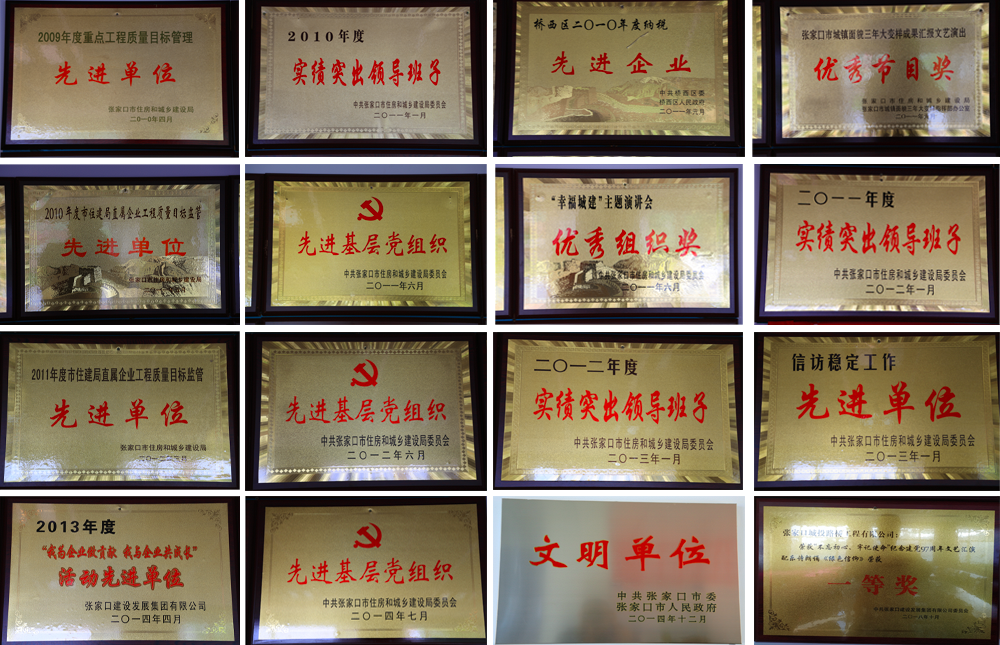 2009年度重点工程质量目标管理
先进单位
张家口市住房和城乡建设局
二〇一〇年四月
2010年度
实绩突出领导班子
中共张家口市住房和城乡建设局委员会
二〇一一年一月
桥西区二〇一〇年度纳税
先进企业
中共桥西区委
桥西区人民政府
二〇一一年元月
张家口市城镇面貌三年大变样成果汇报文艺演出
优秀节目奖
张家口市住房和城乡建设局
张家口市城镇面貌三年大变样指挥部办公室
2010年度市住建局直属企业工程质量目标监管
先进单位
张家口市住房和城乡建设局
先进基层党组织
中共张家口市住房和城乡建设局委员会
二〇一一年六月
“幸福城建”主题演讲会
优秀组织奖
中共张家口市住房和城乡建设局委员会
二〇一一年六月
二〇一一年度
实绩突出领导班子
中共张家口市住房和城乡建设局委员会
二〇一二年一月
2011年度市住建局直属企业工程质量目标监管
先进单位
张家口市住房和城乡建设局
先进基层党组织
中共张家口市住房和城乡建设局委员会
二〇一二年六月
二〇一二年度
实绩突出领导班子
中共张家口市住房和城乡建设局委员会
二〇一三年一月
信访稳定工作
先进单位
中共张家口市住房和城乡建设局委员会
二〇一三年一月
2013年度
“我为企业做贡献 我与企业共成长”
活动先进单位
张家口建设发展集团有限公司
二〇一四年四月
先进基层党组织
中共张家口市住房和城乡建设局委员会
二〇一四年七月
文明单位
中共张家口市委
张家口市人民政府
二〇一四年十二月
荣获“不忘初心、牢记使命”纪念建党97周年文艺汇演
一等奖